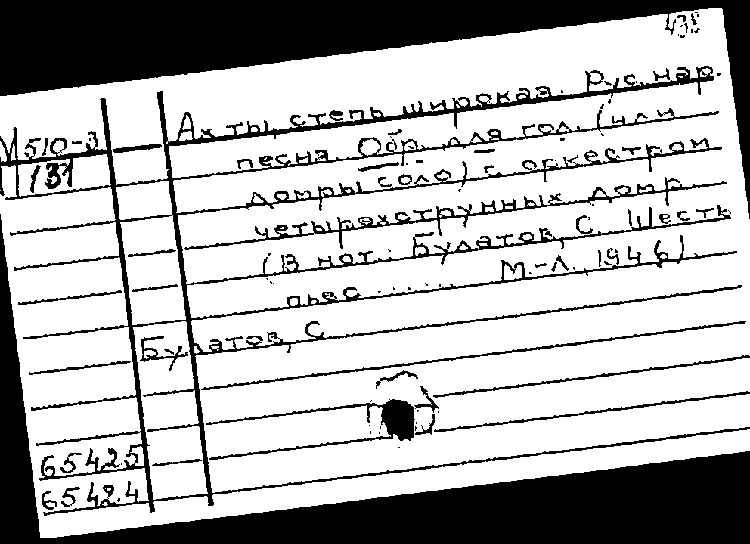 438
М510-3
131
Ах ты, степь широкая. Рус. нар.
песня. Обр. для гол. (или
домры соло) с оркестром
четырехструнных домр
(В нот.: Булатов, С. Шесть
пьес ...... М.-Л., 1946).
Булатов, С
65425
65424